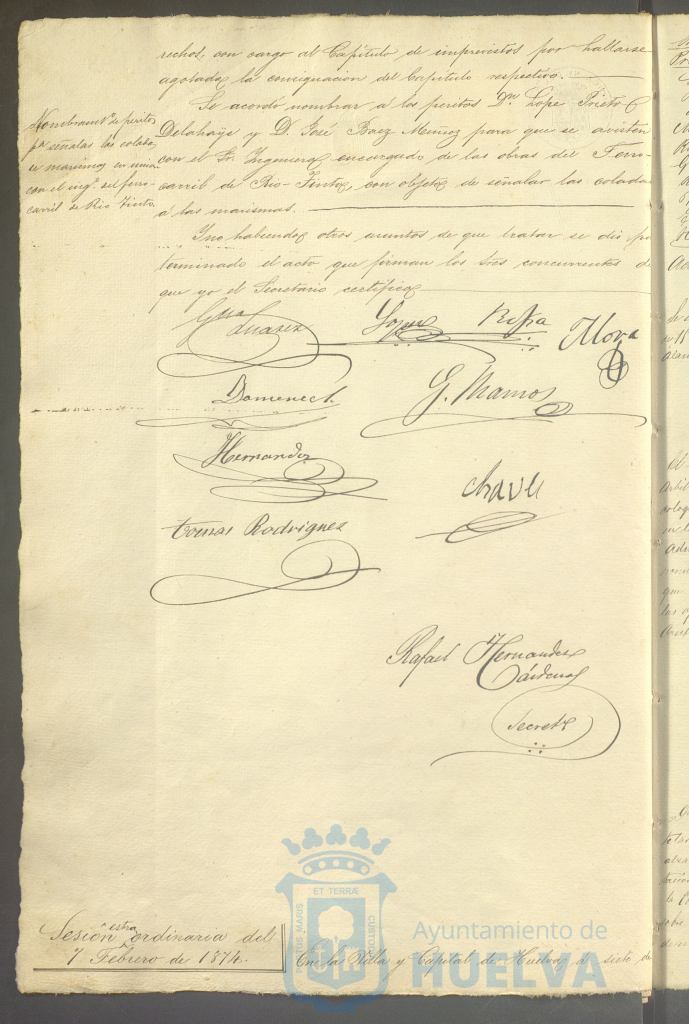 rechos, con cargo al Capítulo de imprevistos por hallarse
agotada la consignacion del Capítulo respectivo.
Nombramto. de peritos
pa. señalar las coladas
de marismas en union
con el ingo. del ferro-
carril de Rio Tinto.
Se acordó nombrar á los peritos Dn. Lope Prieto
Delahaye y D. José Baez Muñoz para que se avisten
con el Sr. Ingeniero encargado de las obras del Ferro-
carril de Rio-Tinto, con objeto de señalar las coladas
á las marismas.
Y no habiendo otros asuntos de que tratar se dió por
terminado el acto que firman los Sres concurrentes de
que yo el Secretario certifico
Suarez
Lopez
Mora
Domenech
G. Ramos
Hernandez
Chaves
Tomas Rodriguez
Rafael Hernandez
Cárdenas
Secreto
Sesion estraordinaria del
7 Febrero de 1874.
En la Villa y Capital de Huelva á siete de
PORTUS MARIS
ET TERRÆ
CUSTODIA
Ayuntamiento de
HUELVA